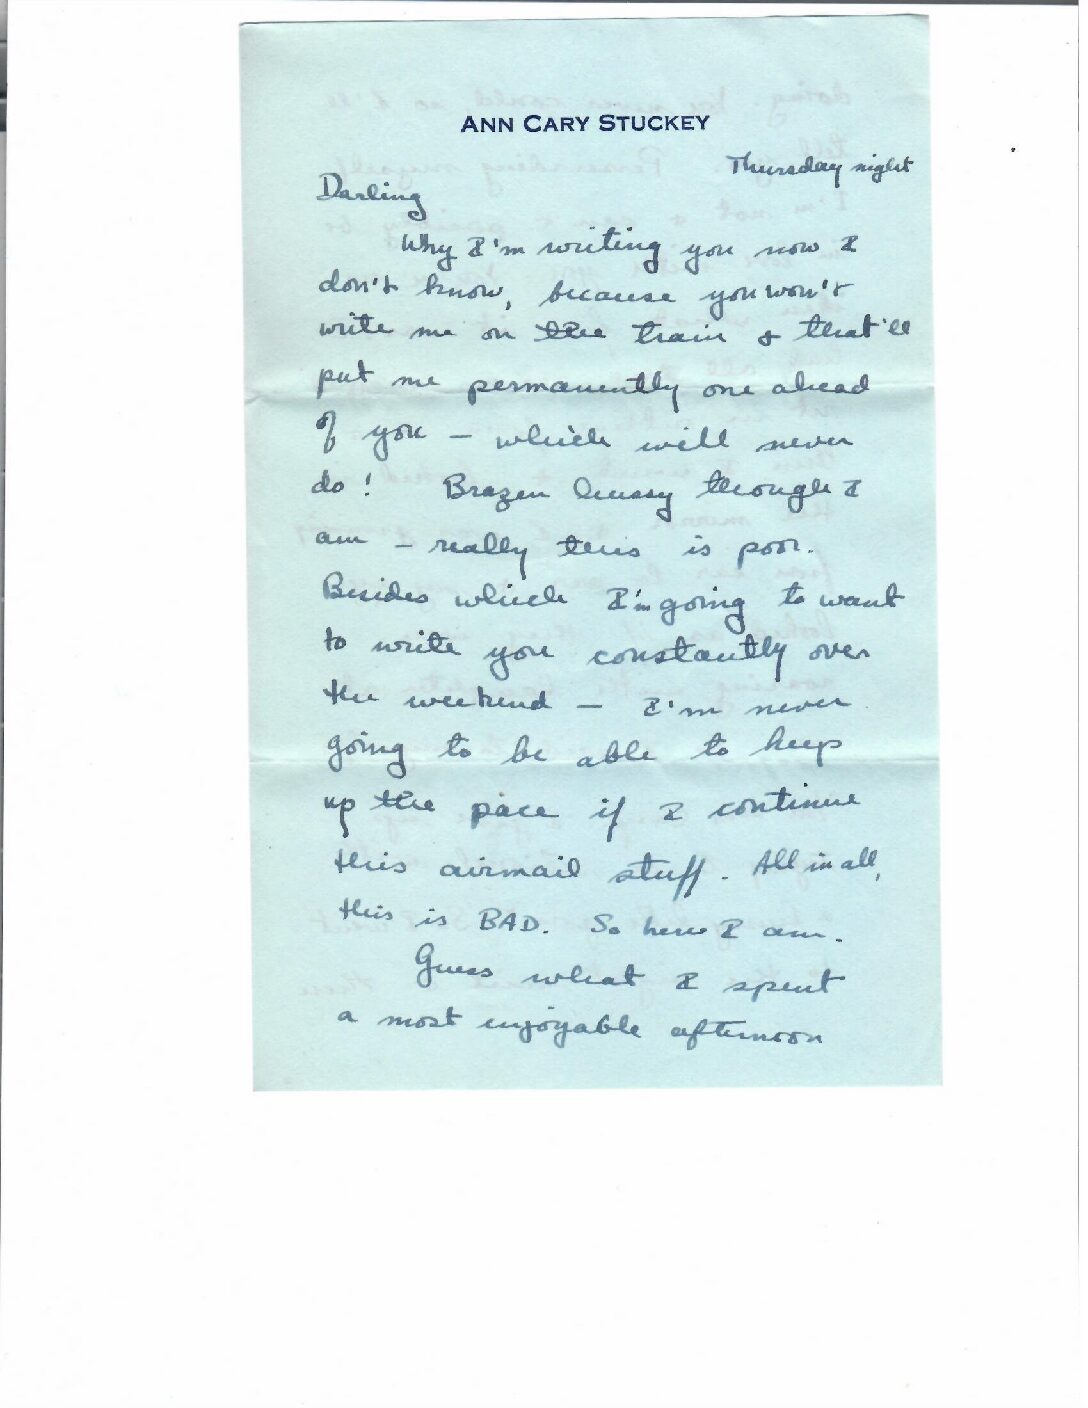 ANN CARY STUCKEY
Thursday night
Darling
Why I'm writing you now I
don't know, because you won't
write me on the train & that'll
put me permanently one ahead
of you — which will never
do! Brazen hussy though I
am — really this is poor.
Besides which I'm going to want
to write you constantly over
the weekend — I'm never
going to be able to keep
up the pace if I continue
this airmail stuff. All in all,
this is BAD. So here I am.
Guess what I spent
a most enjoyable afternoon